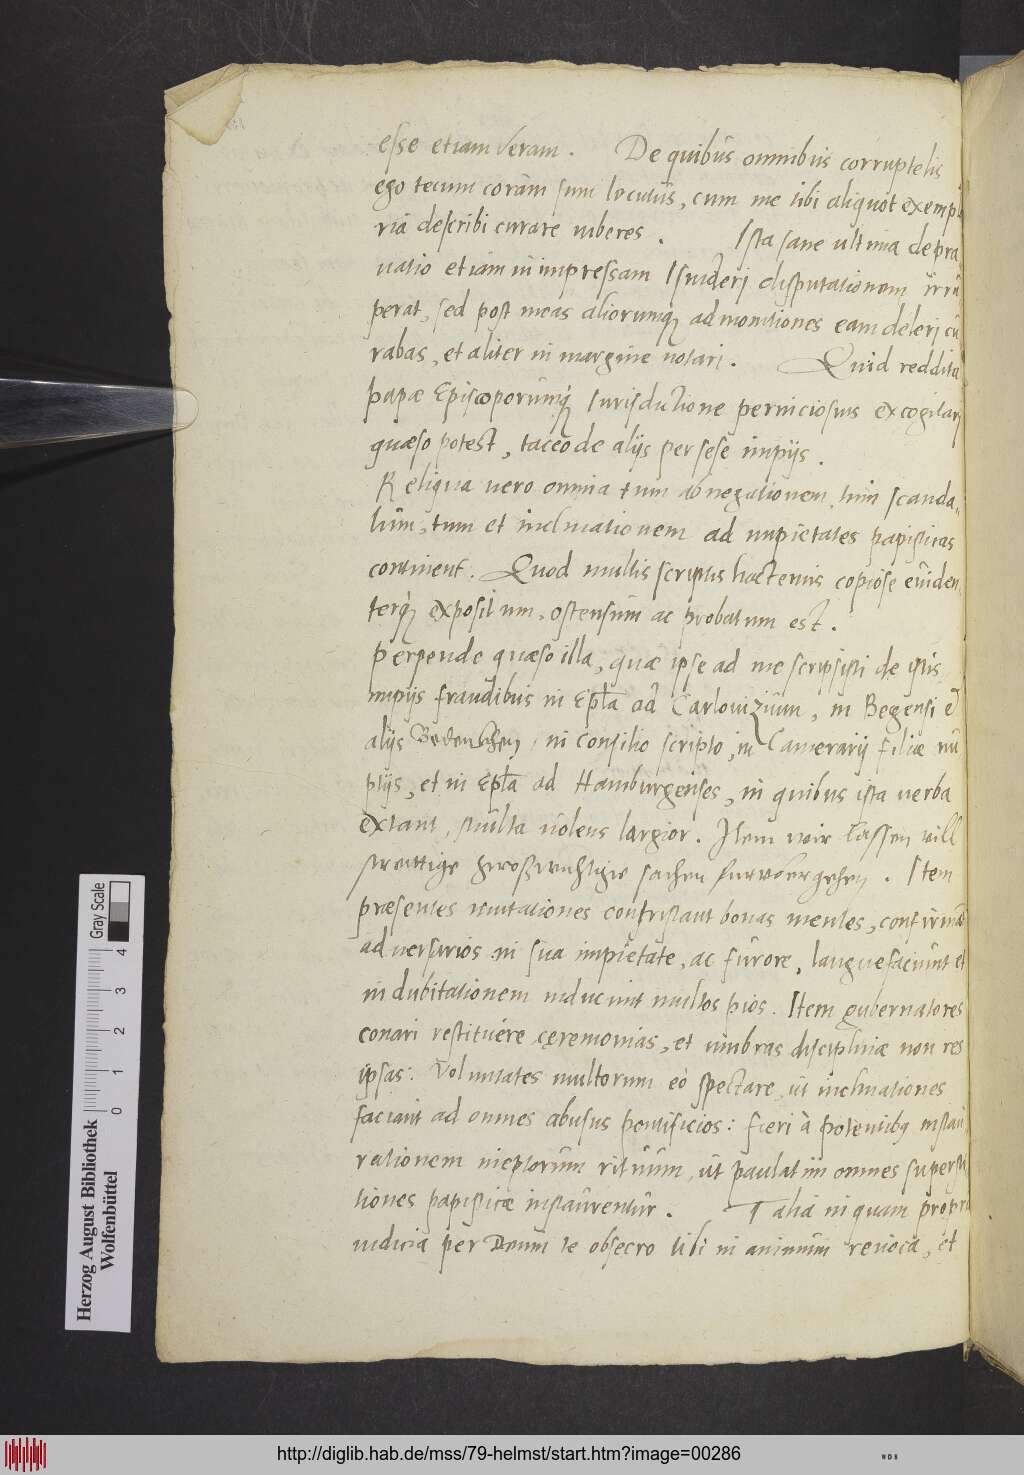 esse etiam veram. De quibus omnibus corruptelis
ego tecum coram sum locutus, cum me tibi aliquot exempla
ria describi curare iuberes. Ista sane ultima depra
vatio etiam in impressam disputationem irru
perat, sed post meas aliorumq; admonitiones eam deleri cu
rabas, et aliter in margine notari. Quid reddita
papæ Episcoporumq; Iurisdictione perniciosius excogitari
quæso potest, taceo de alijs per sese impijs.
Reliqua uero omnia tum abnegationem, tum scanda,,
lum, tum et inclinationem ad impietates papisticas
continent. Quod multis scriptis hactenus copiose euiden
terq; expositum, ostensum ac probatum est.
Perpende quæso illa, quæ ipse ad me scripsisti de istis
impijs fraudibus in Epla ad Carlouizium, in Begensi et
alijs Bedencken, in consilio scripto, in Camerarij filiæ nu
ptijs, et in Epla ad Hamburgenses, in quibus ista uerba
extant, multa uolens largior. Item wir lassen vill
streittige sachen furubergehen. Item
præsentes mutationes contristant bonas mentes, confirmāt
aduersarios in sua impietate, ac furore, languefaciunt et
in dubitationem inducunt multos pios. Item gubernatores
conari restituere cęremonias, et umbras disciplinæ non res
ipsas: Voluntates multorum eò spectare, ut inclinationes
faciant ad omnes abusus pontificios: fieri à potentibq instau
rationem ineptorum rituum, ut paulatim omnes supersti
tiones papisticæ instaurentur. Talia inquam propria
iudicia per Deum te obsecro tibi in animum reuoca, et
Herzog August Bibliothek
Wolfenbüttel
Gray Scale
0 1 2 3 4
http://diglib.hab.de/mss/79-helmst/start.htm?image=00286